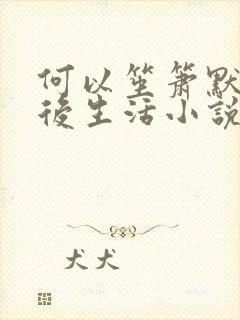 何以笙箫默
後生活小説
犬犬